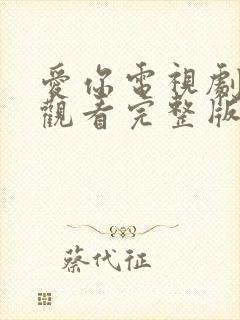 愛你電視劇
觀看完整版
蔡代征